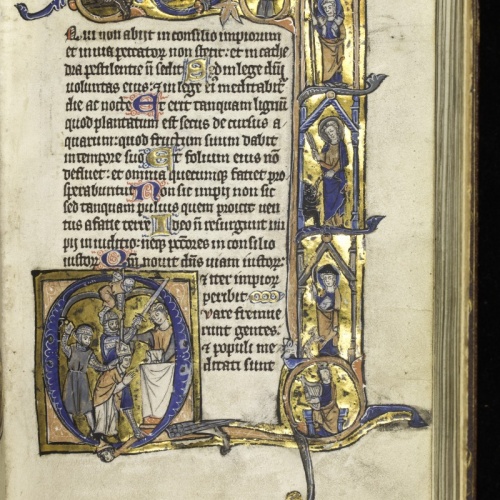 Qui non abijt in consilio impiorum
et in uia peccatorum non stetit: et in cathe
dra pestilentie n̄ sedit Sed in lege dn̄i
uoluntas eius: & in lege ei meditabit̄
die ac nocte Et erit tanquam lignū
quod plantatum est secus decursus a
quarum: quod fructum suum dabit
in tempore suo Et folium eius nō
defluet: et omnia quecunq; faciet pro
sperabuntur Non sic impij non sic
sed tanquam puluis quem proicit uen
tus a facie terre Ideo n̄ resurgunt im
pij in iuditio: neq; pc̄tores in consilio
iustor Qm̄ nouit dn̄s uiam iustor:
& iter impior
peribit
uare fremue
runt gentes:
& populi me
ditati sunt